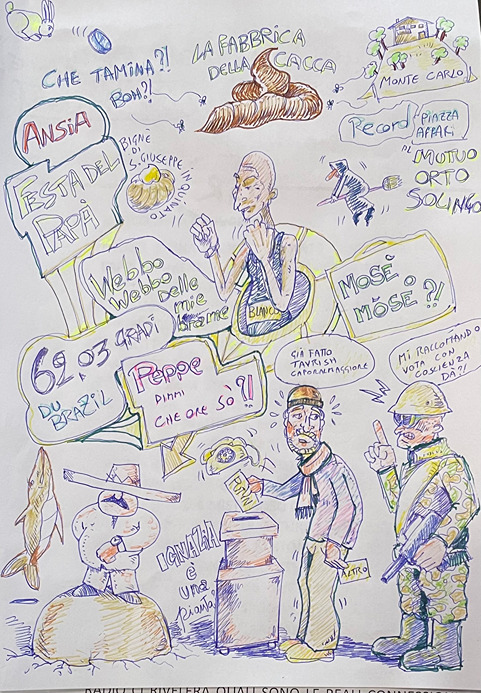 CHE TAMINA?!
BOH?!
LA FABBRICA
DELLA CACCA
MONTE CARLO
Record PIAZZA
AFFARI
ANSIA
FESTA DEL
PAPÀ
BIGNÈ
DI
S. GIUSEPPE
INQUINATO
IL MUTUO
ORTO
SOLINGO
Webbo
Webbo delle
mie
brame
BLANCO
MOSÈ o
MÒSE?!
62.03 GRADI
DO BRAZIL
Peppe
DIMMI
CHE ORE SÒ?!
GIÀ FATTO
TAVRISH
CAPORALMAGGIORE
MI RACCOMANDO
VOTA CON
COSCIENZA
DA?!
ALTRO
IGNAZIA
è
una
pianta!
RADIO CI RIVELERÀ QUALI SONO LE REALI CONNESSIO